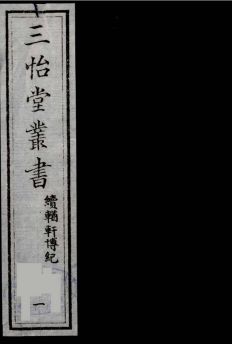 三怡堂叢書
續輶軒博紀
一